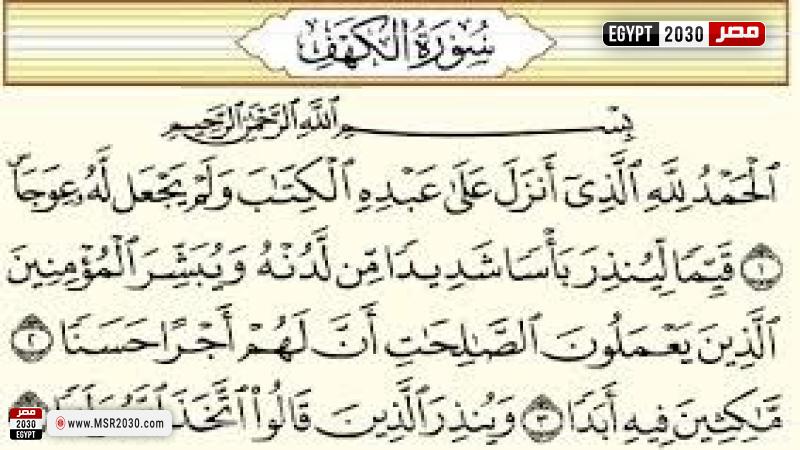 EGYPT 2030 مصر
سُورَةُ الْكَهْفِ
بِسْمِ ٱللَّهِ ٱلرَّحْمَٰنِ ٱلرَّحِيمِ
ٱلْحَمْدُ لِلَّهِ ٱلَّذِىٓ أَنزَلَ عَلَىٰ عَبْدِهِ ٱلْكِتَٰبَ وَلَمْ يَجْعَل لَّهُۥ عِوَجَاۜ
١ قَيِّمًا لِّيُنذِرَ بَأْسًا شَدِيدًا مِّن لَّدُنْهُ وَيُبَشِّرَ ٱلْمُؤْمِنِينَ
ٱلَّذِينَ يَعْمَلُونَ ٱلصَّٰلِحَٰتِ أَنَّ لَهُمْ أَجْرًا حَسَنًا ٢
مَّٰكِثِينَ فِيهِ أَبَدًا ٣ وَيُنذِرَ ٱلَّذِينَ قَالُوا۟ ٱتَّخَذَ ٱللَّهُ وَلَدًا
مصر
2030
EGYPT
www.MSR2030.com